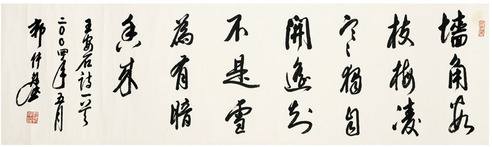 墙角数
枝梅凌
寒独自
開遥知
不是雪
為有暗
香来
王安石诗一首
二〇〇四年五月